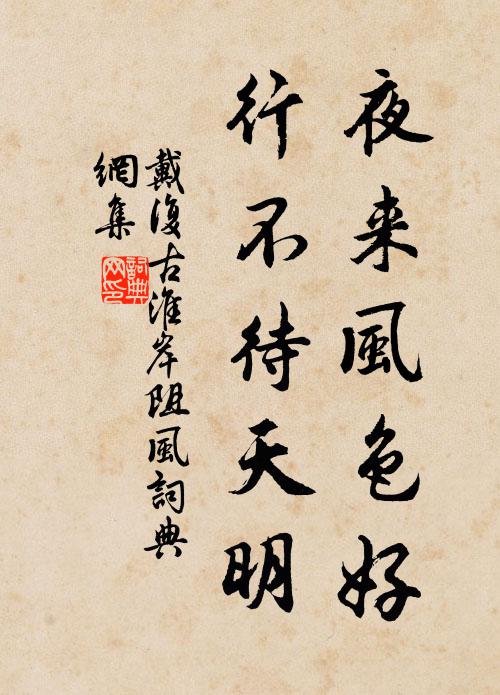 夜来風色好
行不待天明
戴復古淮岸阻風詞典
網集
詞典網印